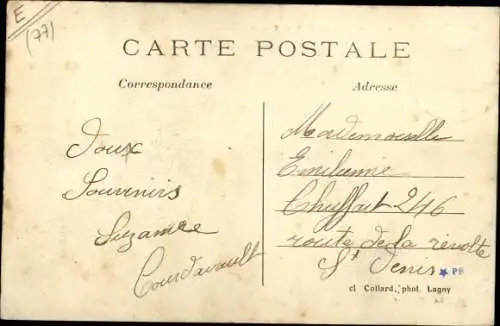 E
(77)
CARTE POSTALE
Correspondance
Adresse
Doux
Souvenirs
Suzanne
Courdavault
Mademoiselle
Emilienne
Chuffart 246
route de la révolte
St Denis
PF
cl Collard, phot. Lagny